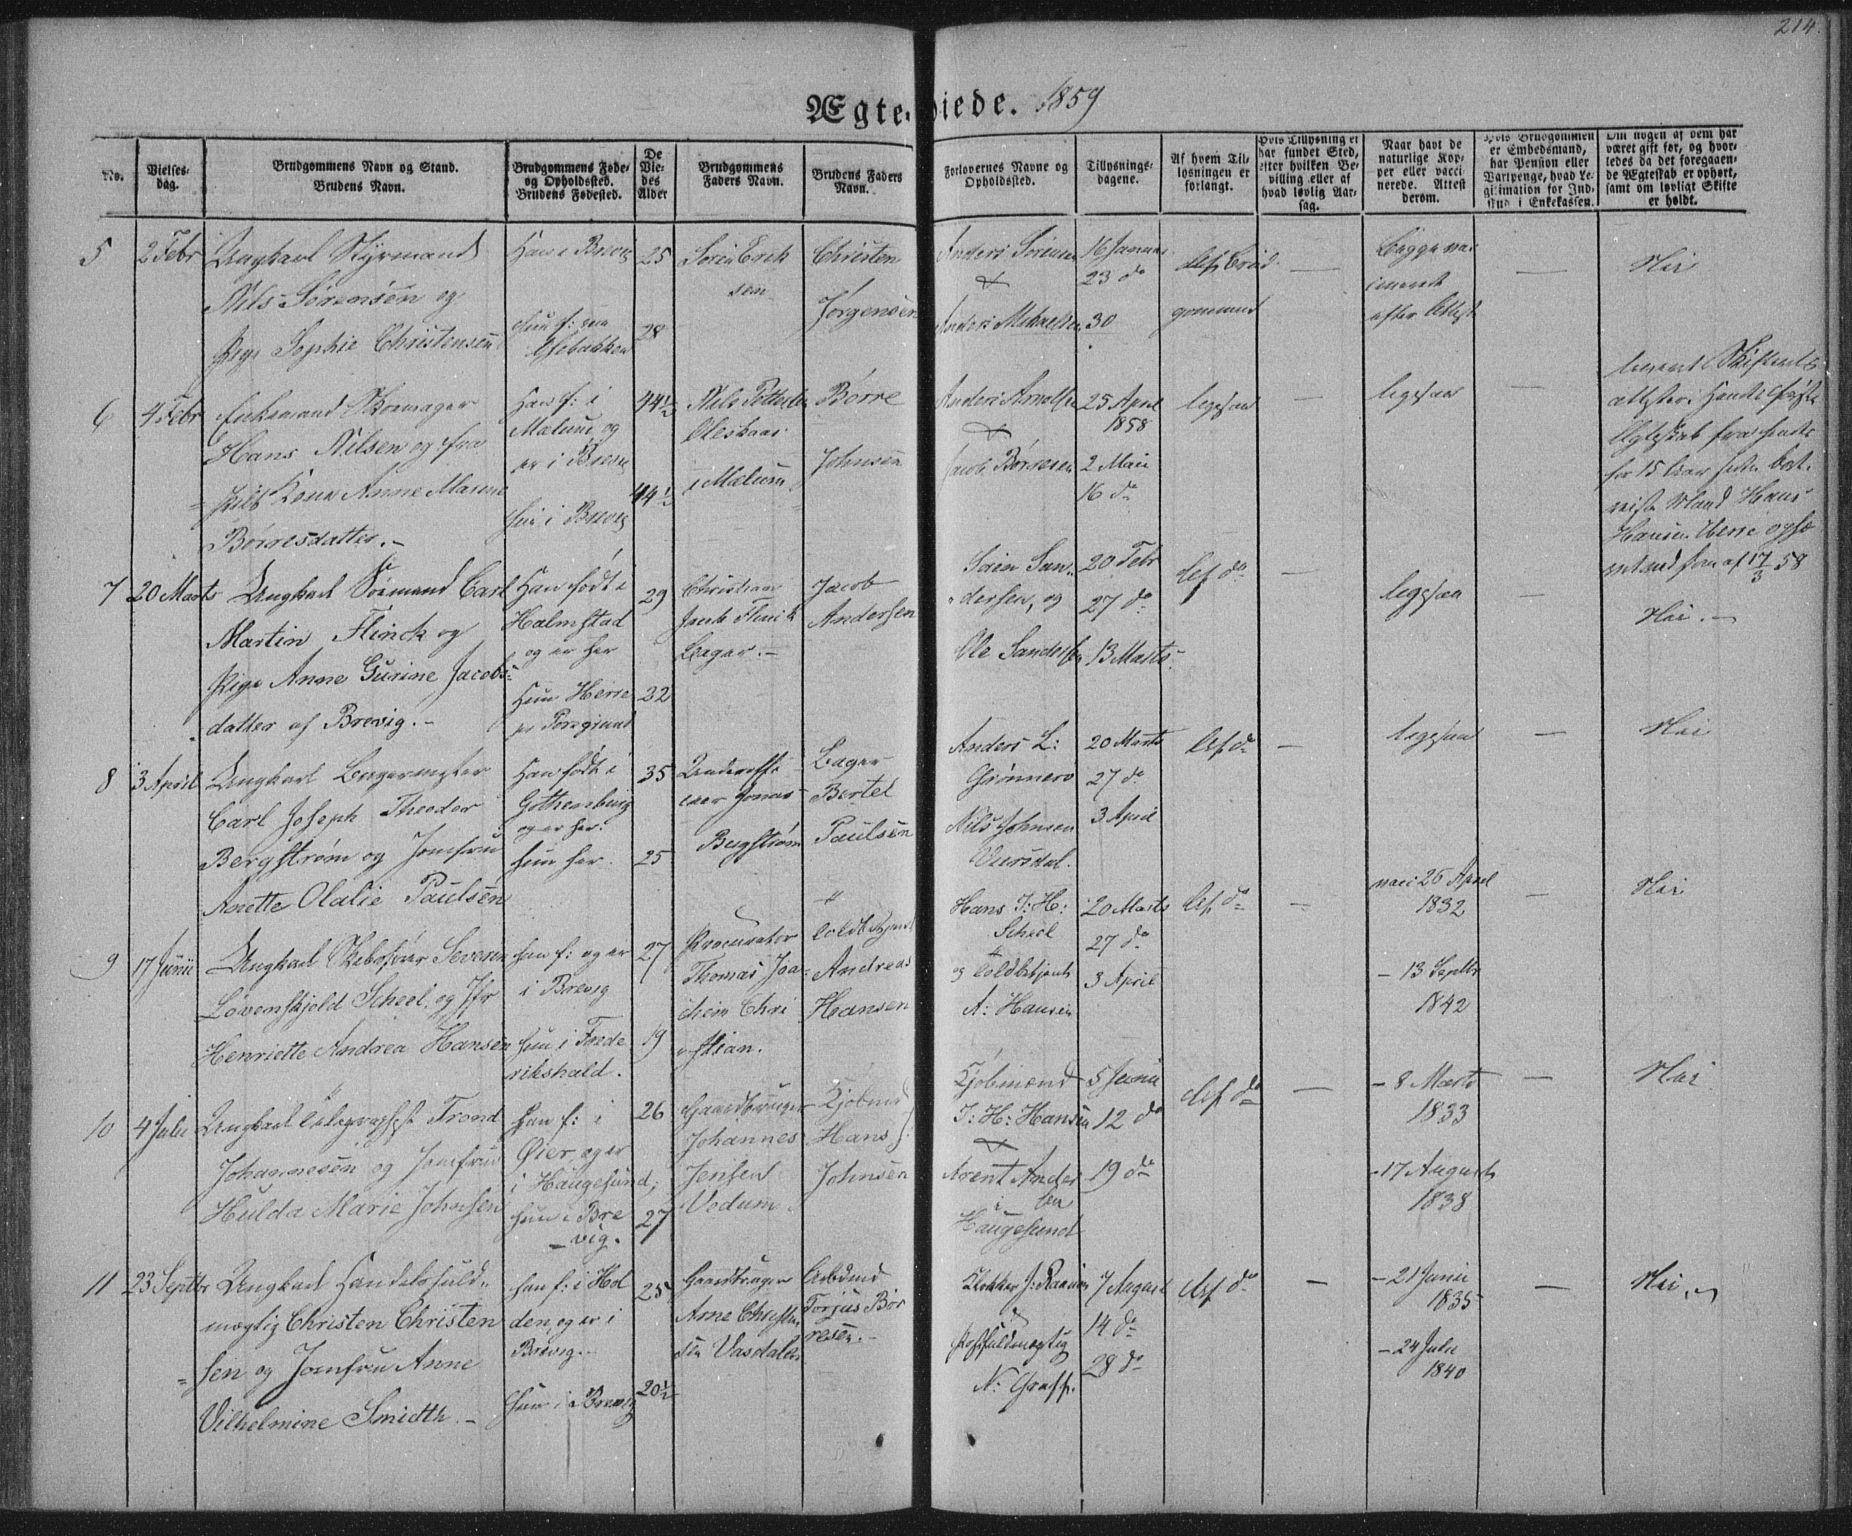 214.
Ægteviede. 1859
No.
Vielses-
dag.
Brudgommens Navn og Stand.
Brudens Navn.
Brudgommens Føde-
og Opholdssted.
Brudens Fødested.
De
Vie-
des
Alder
Brudgommens
Faders Navn.
Brudens Faders
Navn.
Forlovernes Navne og
Opholdssted.
Tillysnings-
dagene.
Af hvem Til-
lysningen er
forlangt.
Hvis Tillysning ei
har fundet Sted,
efter hvilken Be-
villing eller af
hvad lovlig Aar-
sag.
Naar havt de
naturlige Kop-
per eller vacci-
nerede. Attest
derom.
Hvis Brudgommen
er Embedsmand,
har Pension eller
Vartpenge, hvad Le-
gitimation for Ind-
skud i Enkekassen.
Om nogen af dem har
været gift før, og hvor-
ledes da det foregaaen-
de Ægteskab er ophørt,
samt om lovligt Skifte
er holdt.
5
2 Febr
Ungkarl Styrmand
Nils Sørensen og
Pige Sophie Christensen
Han i Brevig
Hun f: paa
25
28
Søren Erik
sen
Christen
Jørgensen
Anders Sørensen
&
Anders Mikaelsen
16 Januar
23 do
30
def Brud-
gommen
Begge vac
cinerede
efter Attest
—
—
Nei
6
4 Febr
Enkemand Skomager
Hans Nilsen og fra
skilt Kone Anne Maren
Børresdatter.-
Han f: i
Mælum og
er i Brevig
Hun i Brevig
44½
44½
Nils
i Melum
Børre
Johnsen
Anders Arnolfsen
&
Jacob Børresen
25 April
1858
2 Mai
16 do
ligesaa
—
ligesaa
—
Ægteskab fra
for 15 Aar siden bort
Mand Hans
Hansen
af 17/3 58
7
20 Marts
Ungkarl Sømand Carl
Martin Flinck og
Pige Anne Gurine Jacobs-
datter af Brevig.-
Han født i
Halmstad
og er her
Hun Herre
pr Porsgrund
29
32
Christian
Jacob Flinck
Bager.-
Jacob
Andersen
Søren San-
dersen, og
Ole Sandersen
20 Febr
27 do
13 Marts
def do
—
ligesaa
Nei.-
8
3 April
Ungkarl Bagermester
Carl Joseph Theodor
Bergstrøm og Jomfru
Anette Olalie Paulsen
Han født i
Gothenborg
og er her:
Hun her.
35
25
Underoffi-
cer Jonas
Bergstrøm
Bager
Bertel
Paulsen
Anders L:
Grønnerø
Nils Johnsen
20 Marts
27 do
3 April
def do
—
ligesaa
—
Nei
9
17 Junii
Ungkarl Skibsfører Severin
Løvenskjold Scheel og Jfr
Henriette Andrea Hansen
Han f: og er
i Brevig
Hun i Frede
rikshald.
27
19
Procurator
Thomas Joa-
chim Chri
stian.
Toldbetjent
Andreas
Hansen
Hans T: H:
Scheel
og Toldbetjent
A: Hansen
20 Marts
27 do
3 April
def do
—
vacc 26 April
1832
- 13 Septbr
1842
—
Nei
10
4 Julii
Ungkarl Telegraphist Trond
Johannesen og Jomfru
Hulda Marie Johnsen
Han f: i
Øier, og er
i Haugesund,
Hun i Bre
- vig.
26
27
Gaardbruger
Johannes
Jensen
Vedum
Kjøbmd
Hans J.
Johnsen
Kjøbmænd
T: H: Hansen
&
Arent Ander
sen
i
Haugesund
5 Junii
12 do
19 do
def do
—
- 8 Marts
1833
- 17 August
1838
—
Nei
11
23 Septbr
Ungkarl Handelsfuld-
mægtig Christen Christen
sen og Jomfru Anne
Vilhelmine Smidth.-
Han f: i Hol
den, og er i
Brevig.-
Hun i Brevig
25
20½
Gaardbruger
Arne Christen
sen Vasdalen
Arbdmd
Torjus Bør
resen.-
Klokker J: Rasmussen
Postfuldmægtig
N: Graff.
7 August
14 do
28 do
def do
—
- 21 Junii
1835
- 24 Julii
1840
—
Nei.-